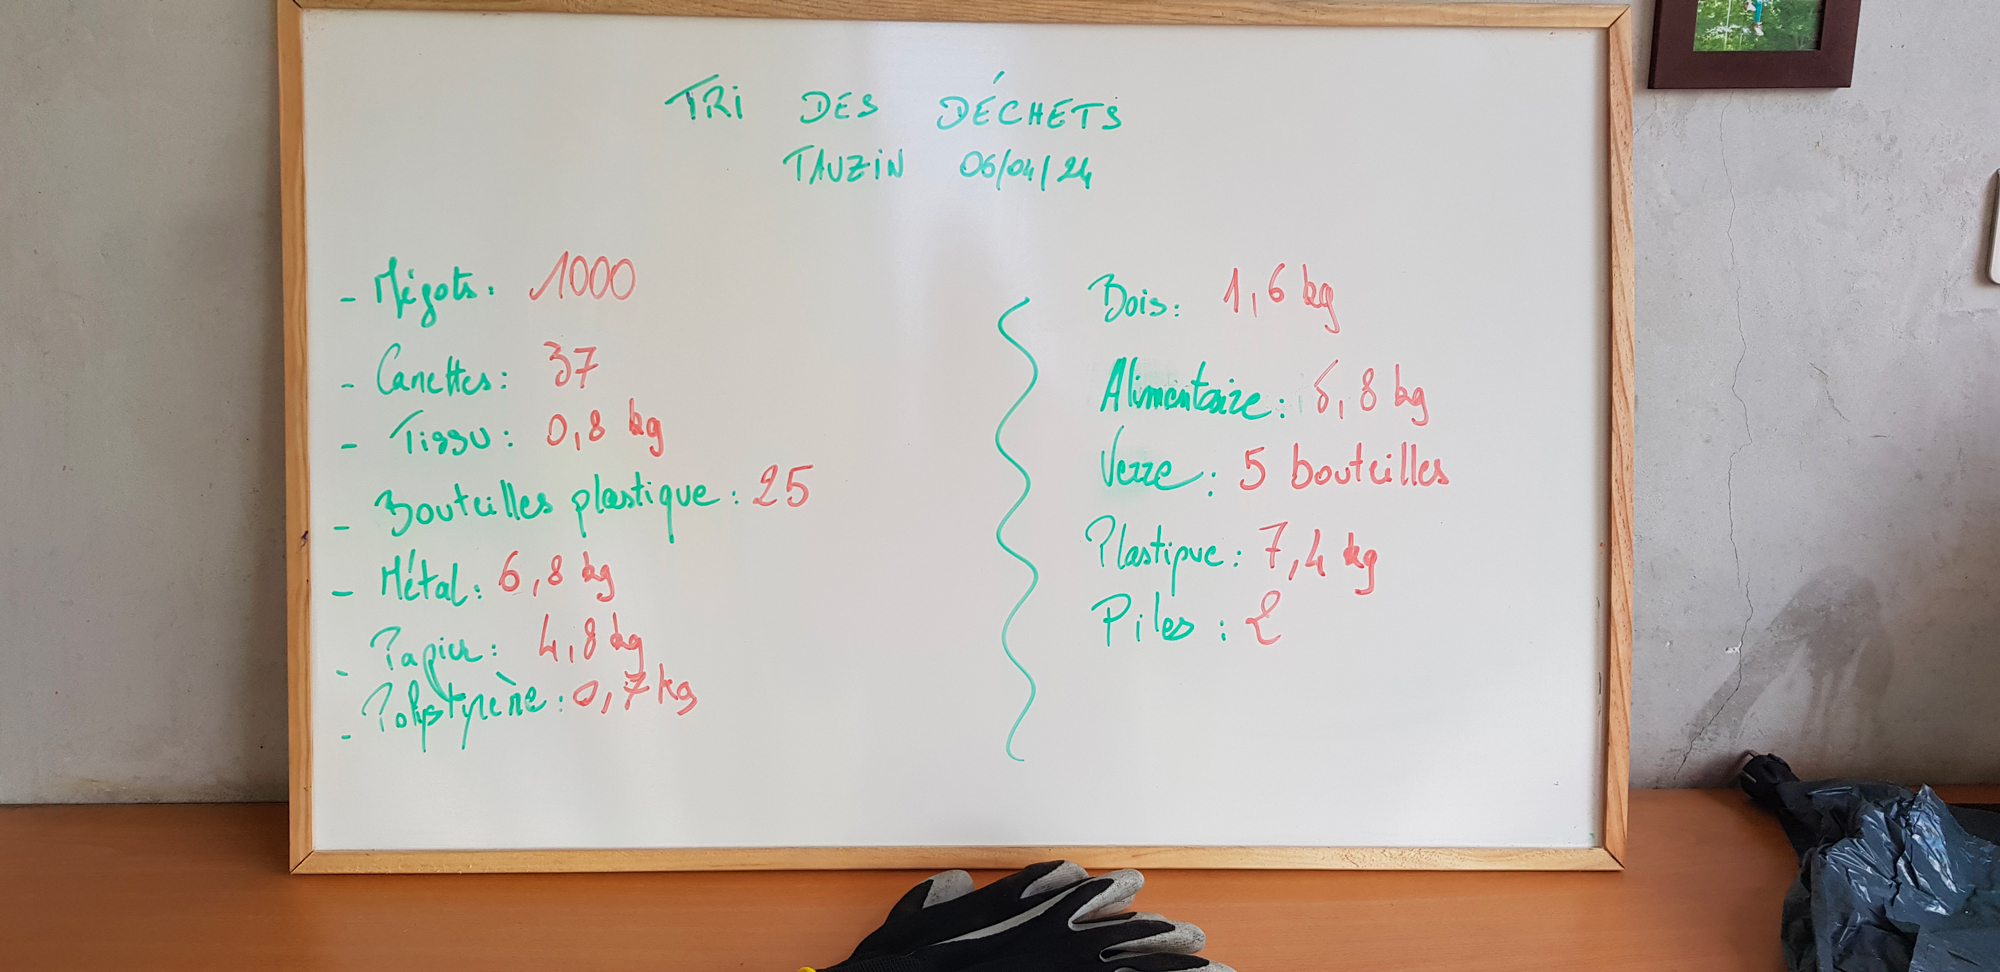 TRI DES DÉCHETS
TAUZIN 06/04/24
- Mégots: 1000
- Canettes: 37
- Tissu: 0,8 kg
- Bouteilles plastique: 25
- Métal: 6,8 kg
- Papier: 4,8 kg
- Polystyrène: 0,7 kg
Bois: 1,6 kg
Alimentaire: kg
Verre: 5 bouteilles
Plastique: 7,4 kg
Piles: 2